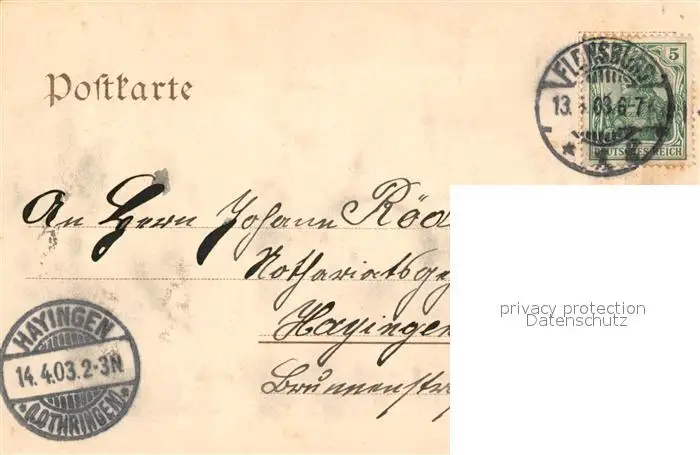 Postkarte
FLENSBURG
13. 4. 03. 6-7
5
DEUTSCHES REICH
An Herrn Johann Röd
Nothariatsge
Hayingen
Brunnenstr
privacy protection
Datenschutz
HAYINGEN
14.4.03.2-3N
*(LOTHRINGEN)*